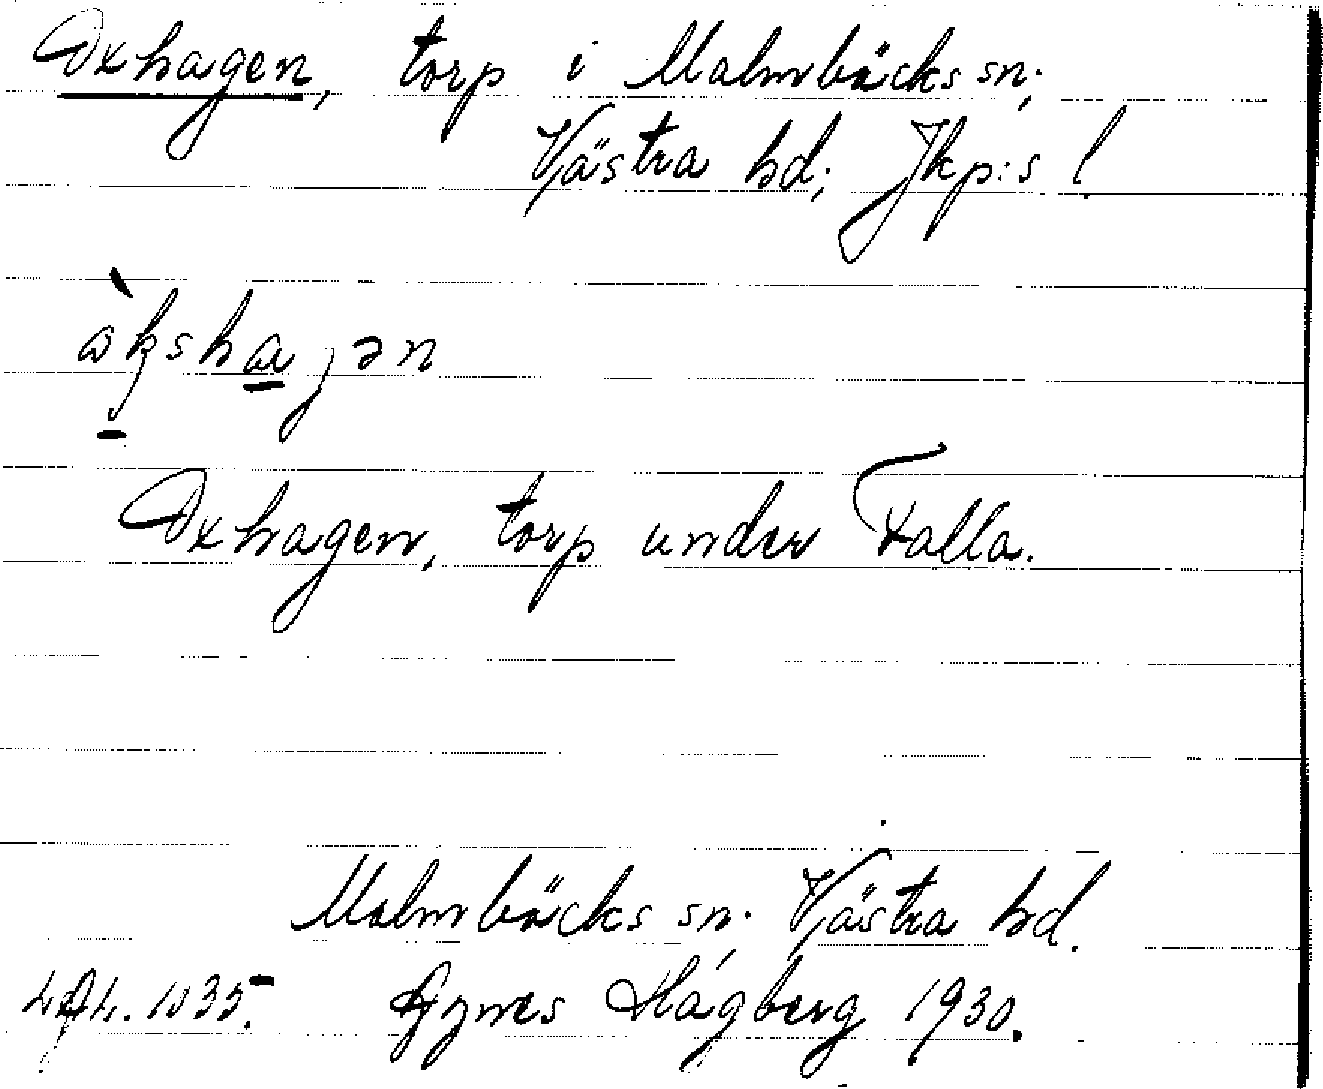 Oxhagen, torp i Malmbäcks sn;
Västra hd; Jkp:s l.
Oxhagen, torp under Falla.
Malmbäcks sn; Västra hd.
1035. Agnes Högberg 1930.